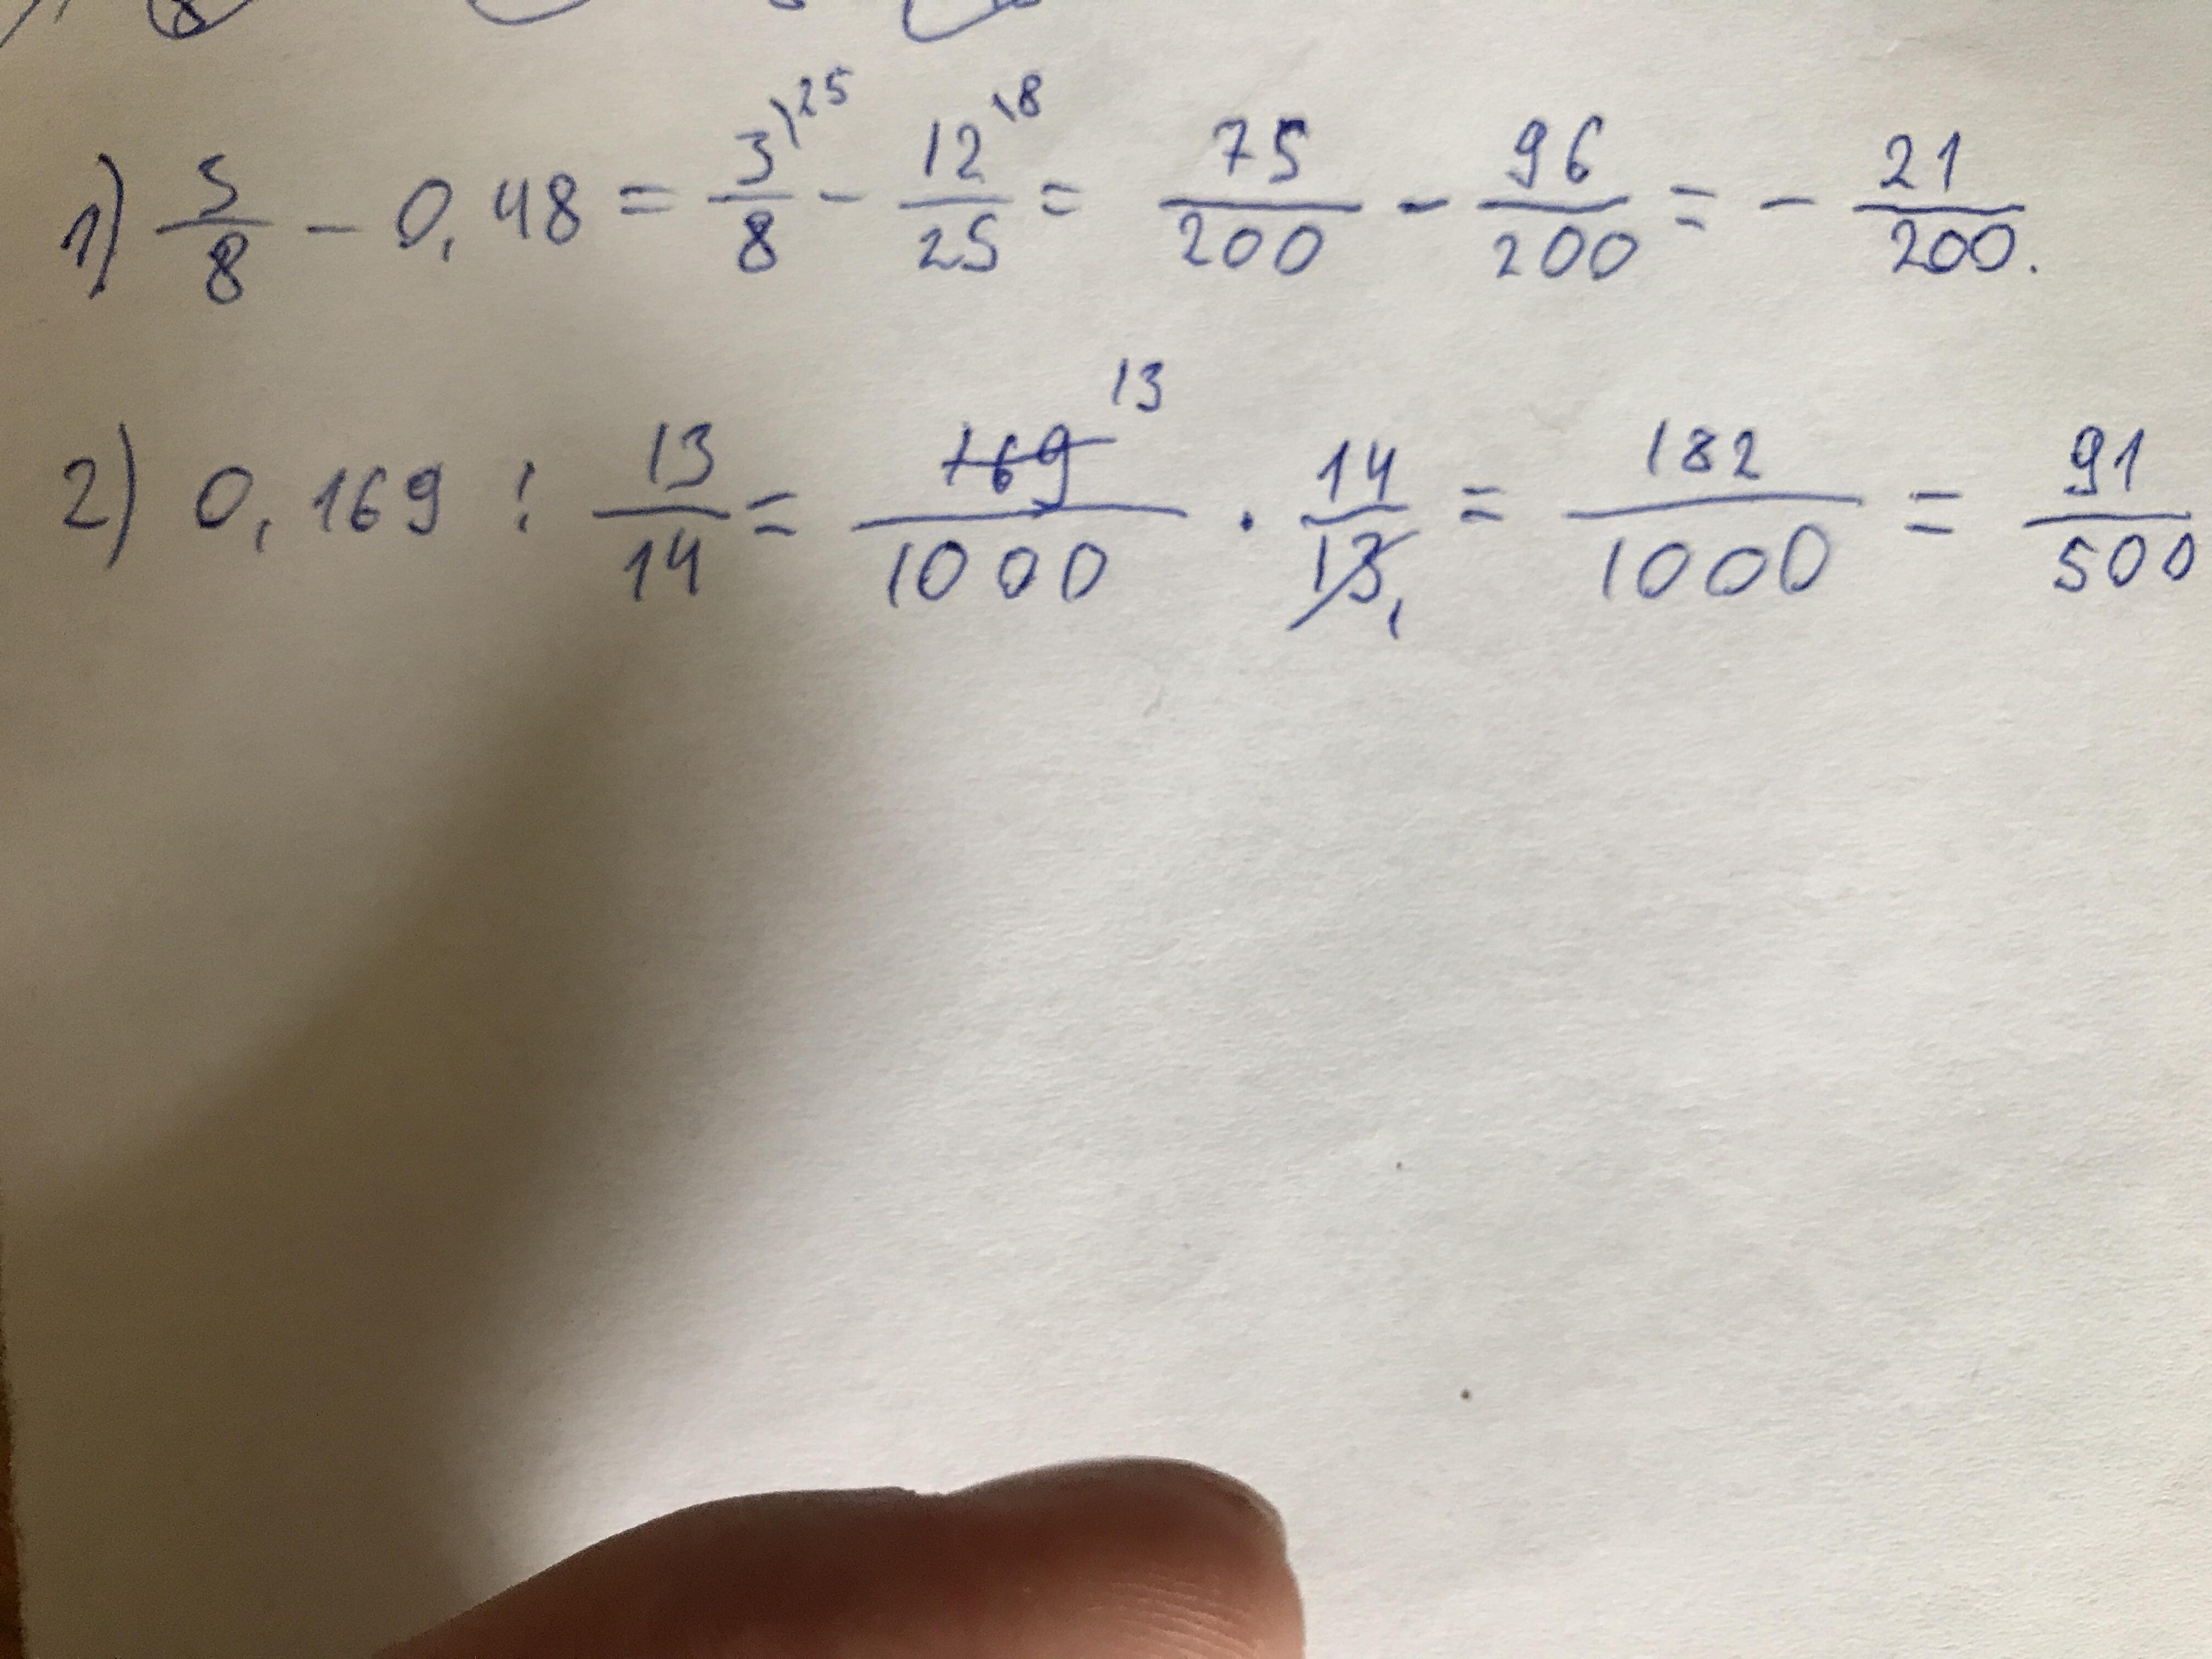 1) 5/8 - 0,48 = 3\25/8 - 12\8/25 = 75/200 - 96/200 = - 21/200.
2) 0,169 : 13/14 = 169 13/1000 · 14/13 1 = 182/1000 = 91/500